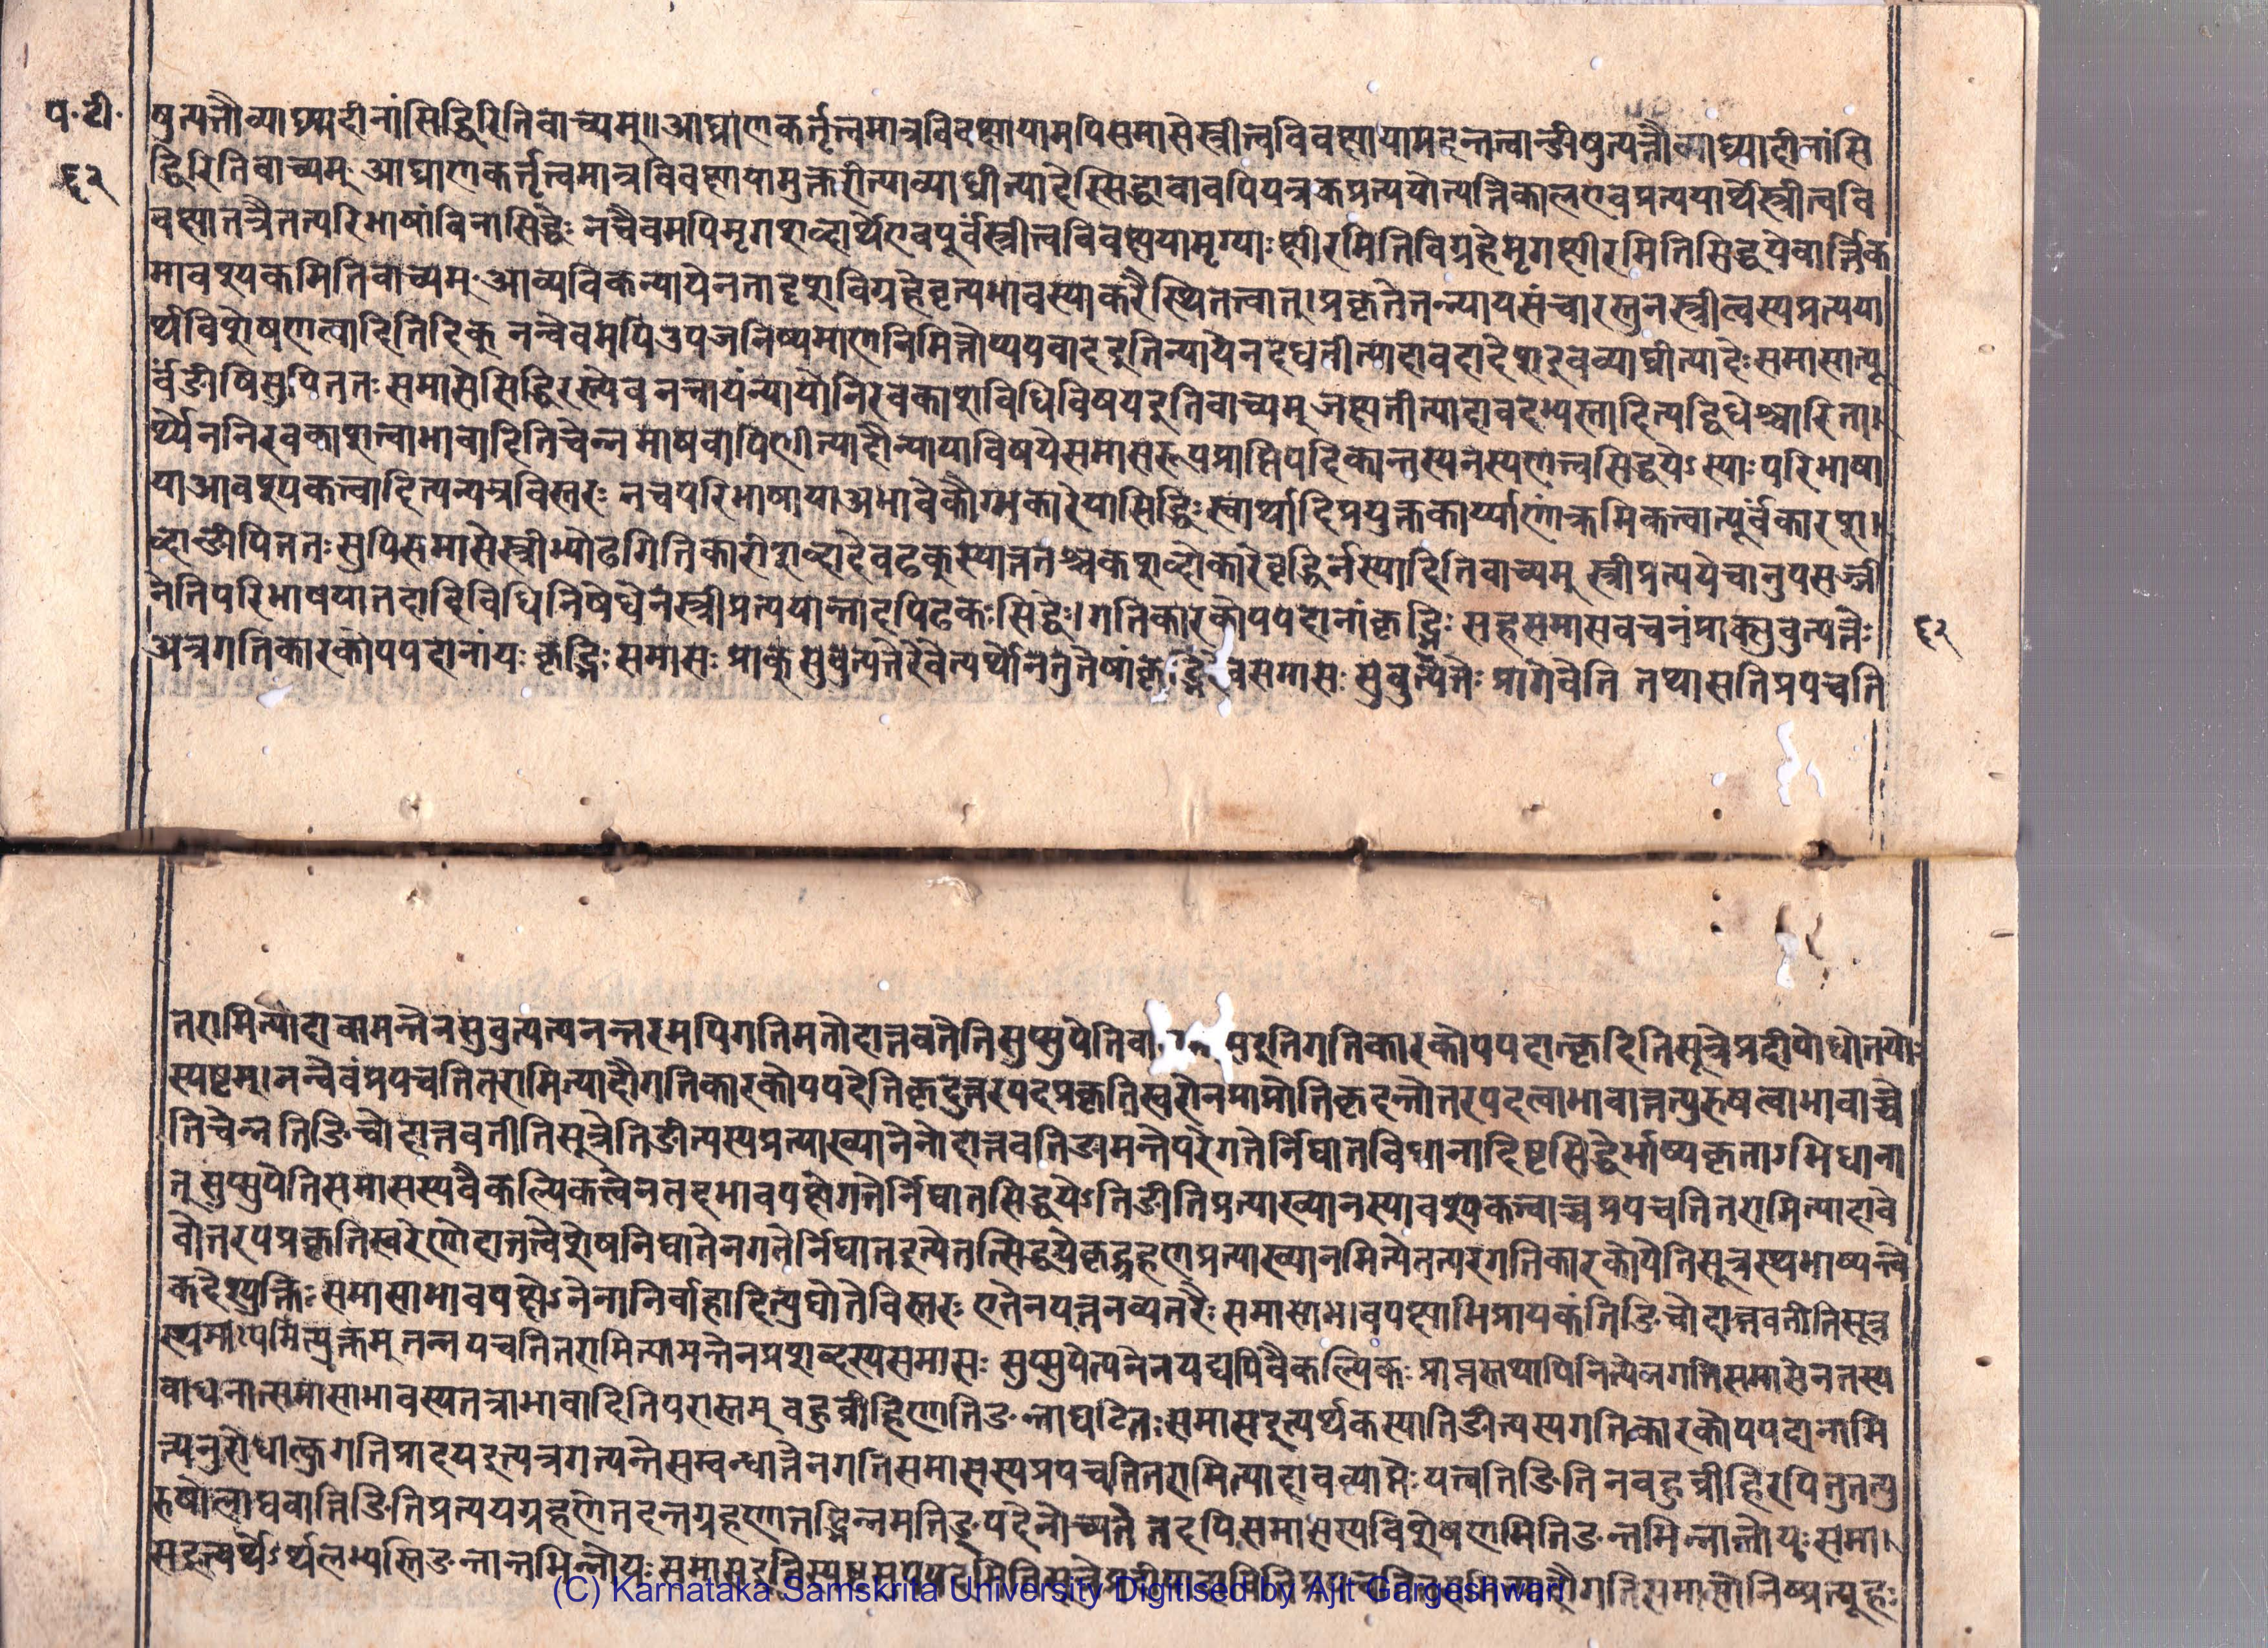 प॰ टी॰
६२
षुत्पत्तौव्याघ्र्यादीनांसिद्धिरितिवाच्यम्॥आघ्राणकर्तृत्वमात्रविवक्षायामपिसमासेस्त्रीत्वविवक्षायामदन्तत्वान्ङीषुत्पत्तौव्याघ्र्यादीनांसि
द्धिरितिवाच्यम् आघ्राणकर्त्तृत्वमात्रविवक्षायामुक्तरीत्याव्याघ्रीत्यादेस्सिद्धावावपियत्रकप्रत्ययोत्पत्तिकालएवप्रत्ययार्थेस्त्रीत्ववि
वक्षातत्रैतत्परिभाषांविनासिद्धेः नचैवमपिमृगशब्दार्थेएवपूर्वंस्त्रीत्वविवक्षयामृग्याःक्षीरमितिविग्रहेमृगक्षीरमितिसिद्धयेवार्त्तिक
मावश्यकमितिवाच्यम् आव्यविकन्यायेनतादृशविग्रहेवृत्यभावस्याकरेस्थितत्वात्।प्रकृतेतन्न्यायसंचारस्तुनस्त्रीत्वस्यप्रत्यया
र्थविशेषणत्वादितिदिक् नन्वेवमपिउपजनिष्यमाणनिमित्तोप्यपवादइतिन्यायेनदधतीत्यादावदादेशइवव्याघ्रीत्यादेःसमासात्पू
र्वंङीषिसुपिततःसमासेसिद्धिरस्त्येव नन्वायंन्यायोनिरवकाशविधिविषयइतिवाच्यम् जक्षतीत्यादावदभ्यस्तादित्यद्विधेश्चारिता
र्थ्येननिरवकाशत्वाभावादितिचेन्न माषवापिणीत्यादौन्यायाविषयेसमासरूपप्रातिपदिकान्तस्यनस्यणत्वसिद्धयेऽस्याःपरिभाषा
याआवश्यकत्वादित्यन्यत्रविस्तरः नचपरिभाषायाअभावेकौग्मकारेयासिद्धिःस्वार्थादिप्रयुक्तकार्य्याणांक्रमिकत्वात्पूर्वंकारश
ब्दान्ङीपिततःसुपिसमासेस्त्रीभ्योढगितिकारीशब्दादेवढक्स्यात्ततश्चकशब्दोकारेवृद्धिर्नस्यादितिवाच्यम् स्त्रीप्रत्ययेचानुपसर्ज्जने
नेतिपरिभाषयातदादिविधिनिषेधेनस्त्रीप्रत्ययान्तादपिढकःसिद्धेः।गतिकारकोपपदानांकृद्भिः सहसमासवचनंप्राक्सुबुत्पत्तेः
अत्रगतिकारकोपपदानांयः कृद्भिः समासः प्राक् सुबुत्पत्तेरेवेत्यर्थोनतुतेषांकृद्भिरेवसमासः सुबुत्पत्तेः प्रागेवेति तथासतिप्रपचति
६२
तरामित्यादावामन्तेनसुबुत्पत्यनन्तरमपिगतिमतोदात्तवतेतिसुप्सुपेतिवा इतिगतिकारकोपपदात्कृदितिसूत्रेप्रदीपोद्योतयोः
स्पष्टम्।नन्वेवंप्रपचतितरामित्यादौगतिकारकोपपदेतिकृदुत्तरपदप्रकृतिस्वरोनप्राप्नोतिकृदन्तोत्तरपदत्वाभावात्तत्पुरुषत्वाभावाच्चे
तिचेन्न तिङिचोदात्तवतीतिसूत्रेतिङीत्यस्यप्रत्याख्यानेनोदात्तवतिङामन्तेपरेगतेर्निघातविधानादिष्टसिद्धेर्भाष्यकृताऽभिधाना
त् सुप्सुपेतिसमासस्यवैकल्पिकत्वेनतदभावपक्षेगतेर्निघातसिद्धयेऽतिङीतिप्रत्याख्यानस्यावश्यकत्वाच्च प्रपचतितरामित्यादावे
वोत्तरपप्रकृतिस्वरेणोदात्तत्वेशेषनिघातेनगतेर्निघातइत्येतत्सिद्धयेकृद्ग्रहणप्रत्याख्यानमित्येतत्परगतिकारकोपेतिसूत्रस्थभाष्यन्त्वे
कदेश्युक्तिः समासाभावपक्षेऽनेनानिर्वाहादित्युद्योतेविस्तरः एतेनयत्तुनव्यतरैः समासाभावपक्षाभिप्रायकंतिङिचोदात्तवतीतिसूत्र
स्थमाष्यमित्युक्तम् तन्न पचतितरामित्यामन्तेनप्रशब्दस्यसमासः सुप्सुपेत्यनेनयद्यपिवैकल्पिकः प्राप्तस्तथापिनित्येनगतिसमासेनतस्य
बाधनात्समासाभावस्यतत्राभावादितिपरास्तम् बहुव्रीहिणातिङन्ताघटितःसमासइत्यर्थकस्यातिङीत्यस्यगतिकारकोपपदानामि
त्यनुरोधात्कुगतिप्रादयइत्यत्रगत्यन्तेसम्बन्धात्तेनगतिसमासस्यप्रपचतितरामित्यादावव्याप्तेः यत्त्वतिङिति नबहुव्रीहिरपितुतत्पु
रुषोलाघवात्तिङितिप्रत्ययग्रहणेतदन्तग्रहणात्तद्भिन्नमतिङ्पदेनोच्यते तदपिसमासस्यविशेषणमितिङन्तमिन्नान्तोयःसमा
सइत्यर्थेऽर्थलभ्यस्तिङन्तान्तभिन्नोयः गतिसमासोनिष्प्रत्यूहः
(C) Karnataka Samskrita University Digitised by Ajit Gargeshwari